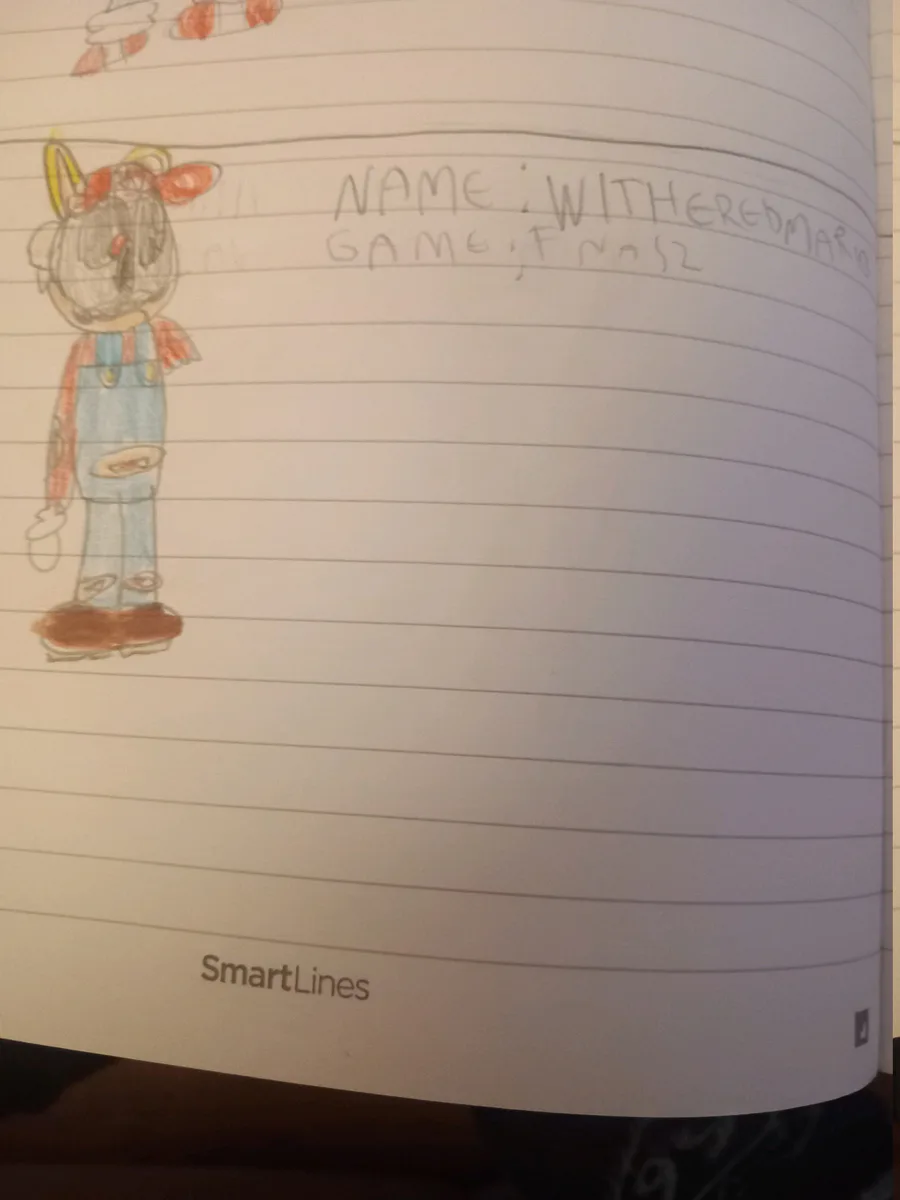 NAME : WITHEREDMARIO
GAME : FNaS2
SmartLines